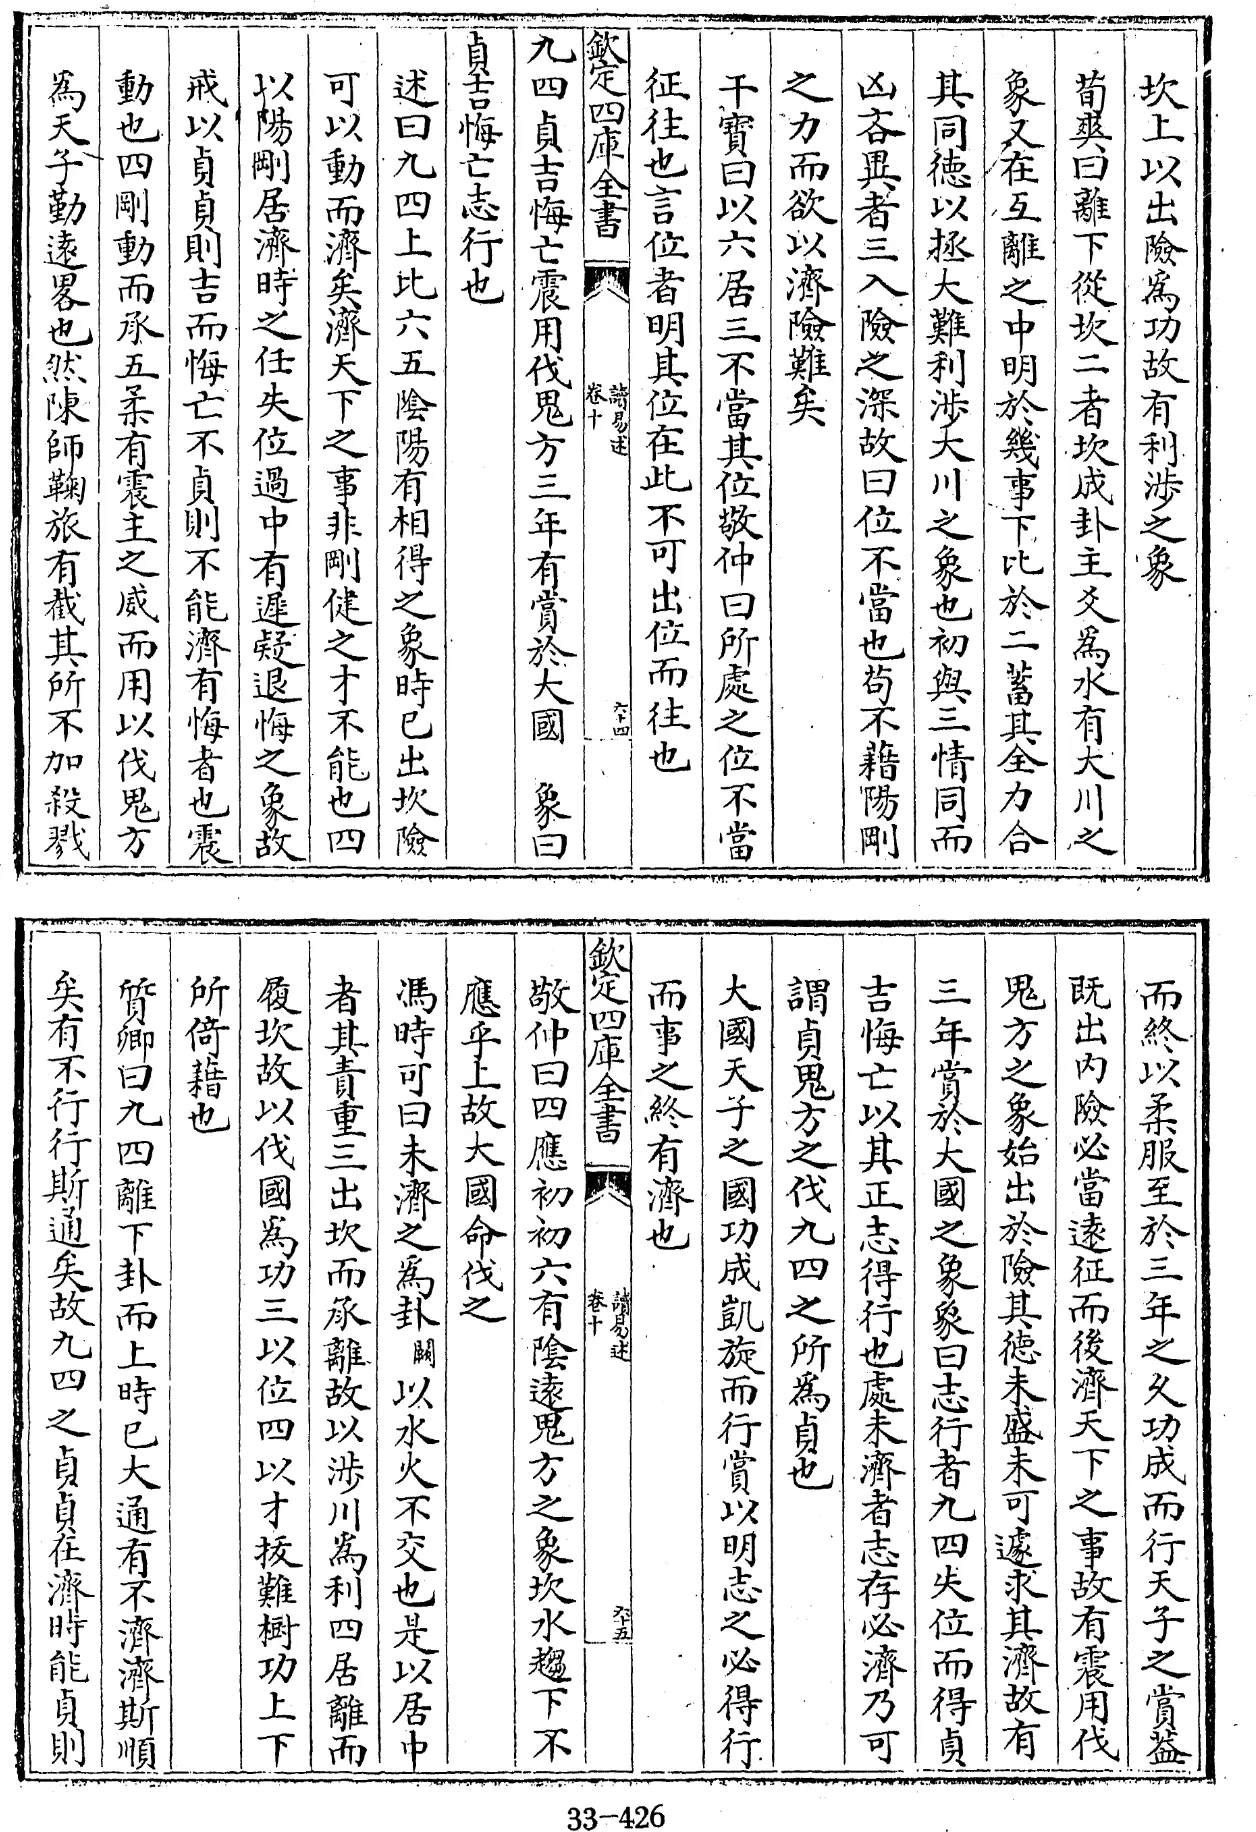 坎上以出險為功故有利涉之象
荀爽曰離下從坎二者坎成卦主爻為水有大川之
象又在互離之中明於幾事下比於二蓄其全力合
其同徳以拯大難利涉大川之象也初與三情同而
凶吝異者三入險之深故曰位不當也苟不藉陽剛
之力而欲以濟險難矣
干寶曰以六居三不當其位敬仲曰所處之位不當
征往也言位者明其位在此不可出位而往也
欽定四庫全書
讀易述
卷十
六十四
九四貞吉悔亡震用伐鬼方三年有賞於大國　象曰
貞吉悔亡志行也
述曰九四上比六五陰陽有相得之象時已出坎險
可以動而濟矣濟天下之事非剛健之才不能也四
以陽剛居濟時之任失位過中有遲疑退悔之象故
戒以貞貞則吉而悔亡不貞則不能濟有悔者也震
動也四剛動而承五柔有震主之威而用以伐鬼方
為天子勤遠畧也然陳師鞠旅有截其所不加殺戮
而終以柔服至於三年之久功成而行天子之賞葢
既出内險必當遠征而後濟天下之事故有震用伐
鬼方之象始出於險其德未盛未可遽求其濟故有
三年賞於大國之象象曰志行者九四失位而得貞
吉悔亡以其正志得行也處未濟者志存必濟乃可
謂貞鬼方之伐九四之所為貞也
大國天子之國功成凱旋而行賞以明志之必得行
而事之終有濟也
欽定四庫全書
讀易述
卷十
六十五
敬仲曰四應初初六有陰遠鬼方之象坎水趨下不
應乎上故大國命伐之
馮時可曰未濟之為卦闕以水火不交也是以居中
者其責重三出坎而承離故以涉川為利四居離而
履坎故以伐國為功三以位四以才拔難樹功上下
所倚藉也
質卿曰九四離下卦而上時已大通有不濟濟斯順
矣有不行行斯通矣故九四之貞貞在濟時能貞則
33-426